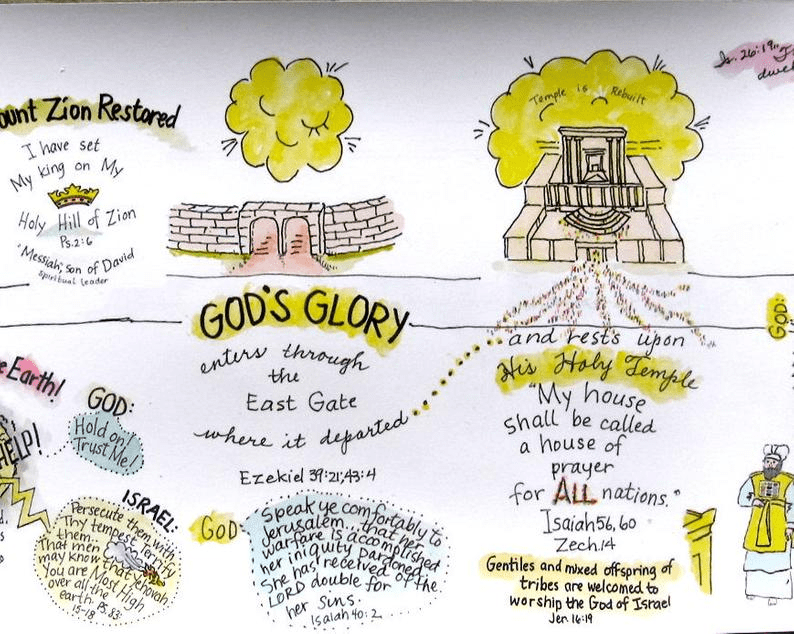 ount Zion Restored
I have set
My king on My
Holy Hill of Zion
Ps. 2:6
"Messiah," son of David
spiritual leader
Temple is Rebuilt
Is. 26:19
dwel
GOD'S GLORY
enters through
the
East Gate
where it departed
Ezekiel 39:21; 43:4
and rests upon
His Holy Temple
"My house
shall be called
a house of
prayer
for ALL nations."
Isaiah 56, 60
Zech. 14
Gentiles and mixed offspring of
tribes are welcomed to
worship the God of Israel
Jer. 16:19
GOD:
e Earth!
HELP!
GOD:
Hold on!
Trust Me!
ISRAEL:
Persecute them with
Thy tempest, terrify
them...
That men
may know that Yehovah
You are Most High
over all the
earth. Ps. 83:
15-18
GOD:
Speak ye comfortably to
Jerusalem... that her
warfare is accomplished
her iniquity pardoned
She has received of the
LORD double for
her sins.
Isaiah 40:2